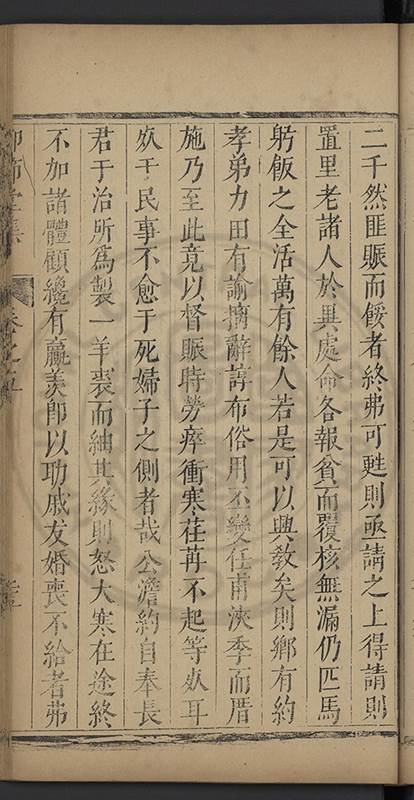 二千然匪賑而餒者終弗可甦則亟請之上得請則
置里老諸人於異處命各報貧而覆核無漏仍匹馬
躬飯之全活萬有餘人若是可以興教矣則鄉有約
孝弟力田有諭摛辭諄布俗用丕變任甫浹季而厝
施乃至此竟以督賑時勞瘁衝寒荏苒不起等死耳
死于民事不愈于死婦子之側者哉公澹約自奉長
君于治所為製一羊裘而紬其緣則怒大寒在途終
不加諸體顧纔有羸羨即以助戚友婚喪不給者弗
卷之五